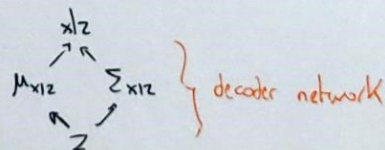 x|z
μx|z Σx|z } decoder network
z